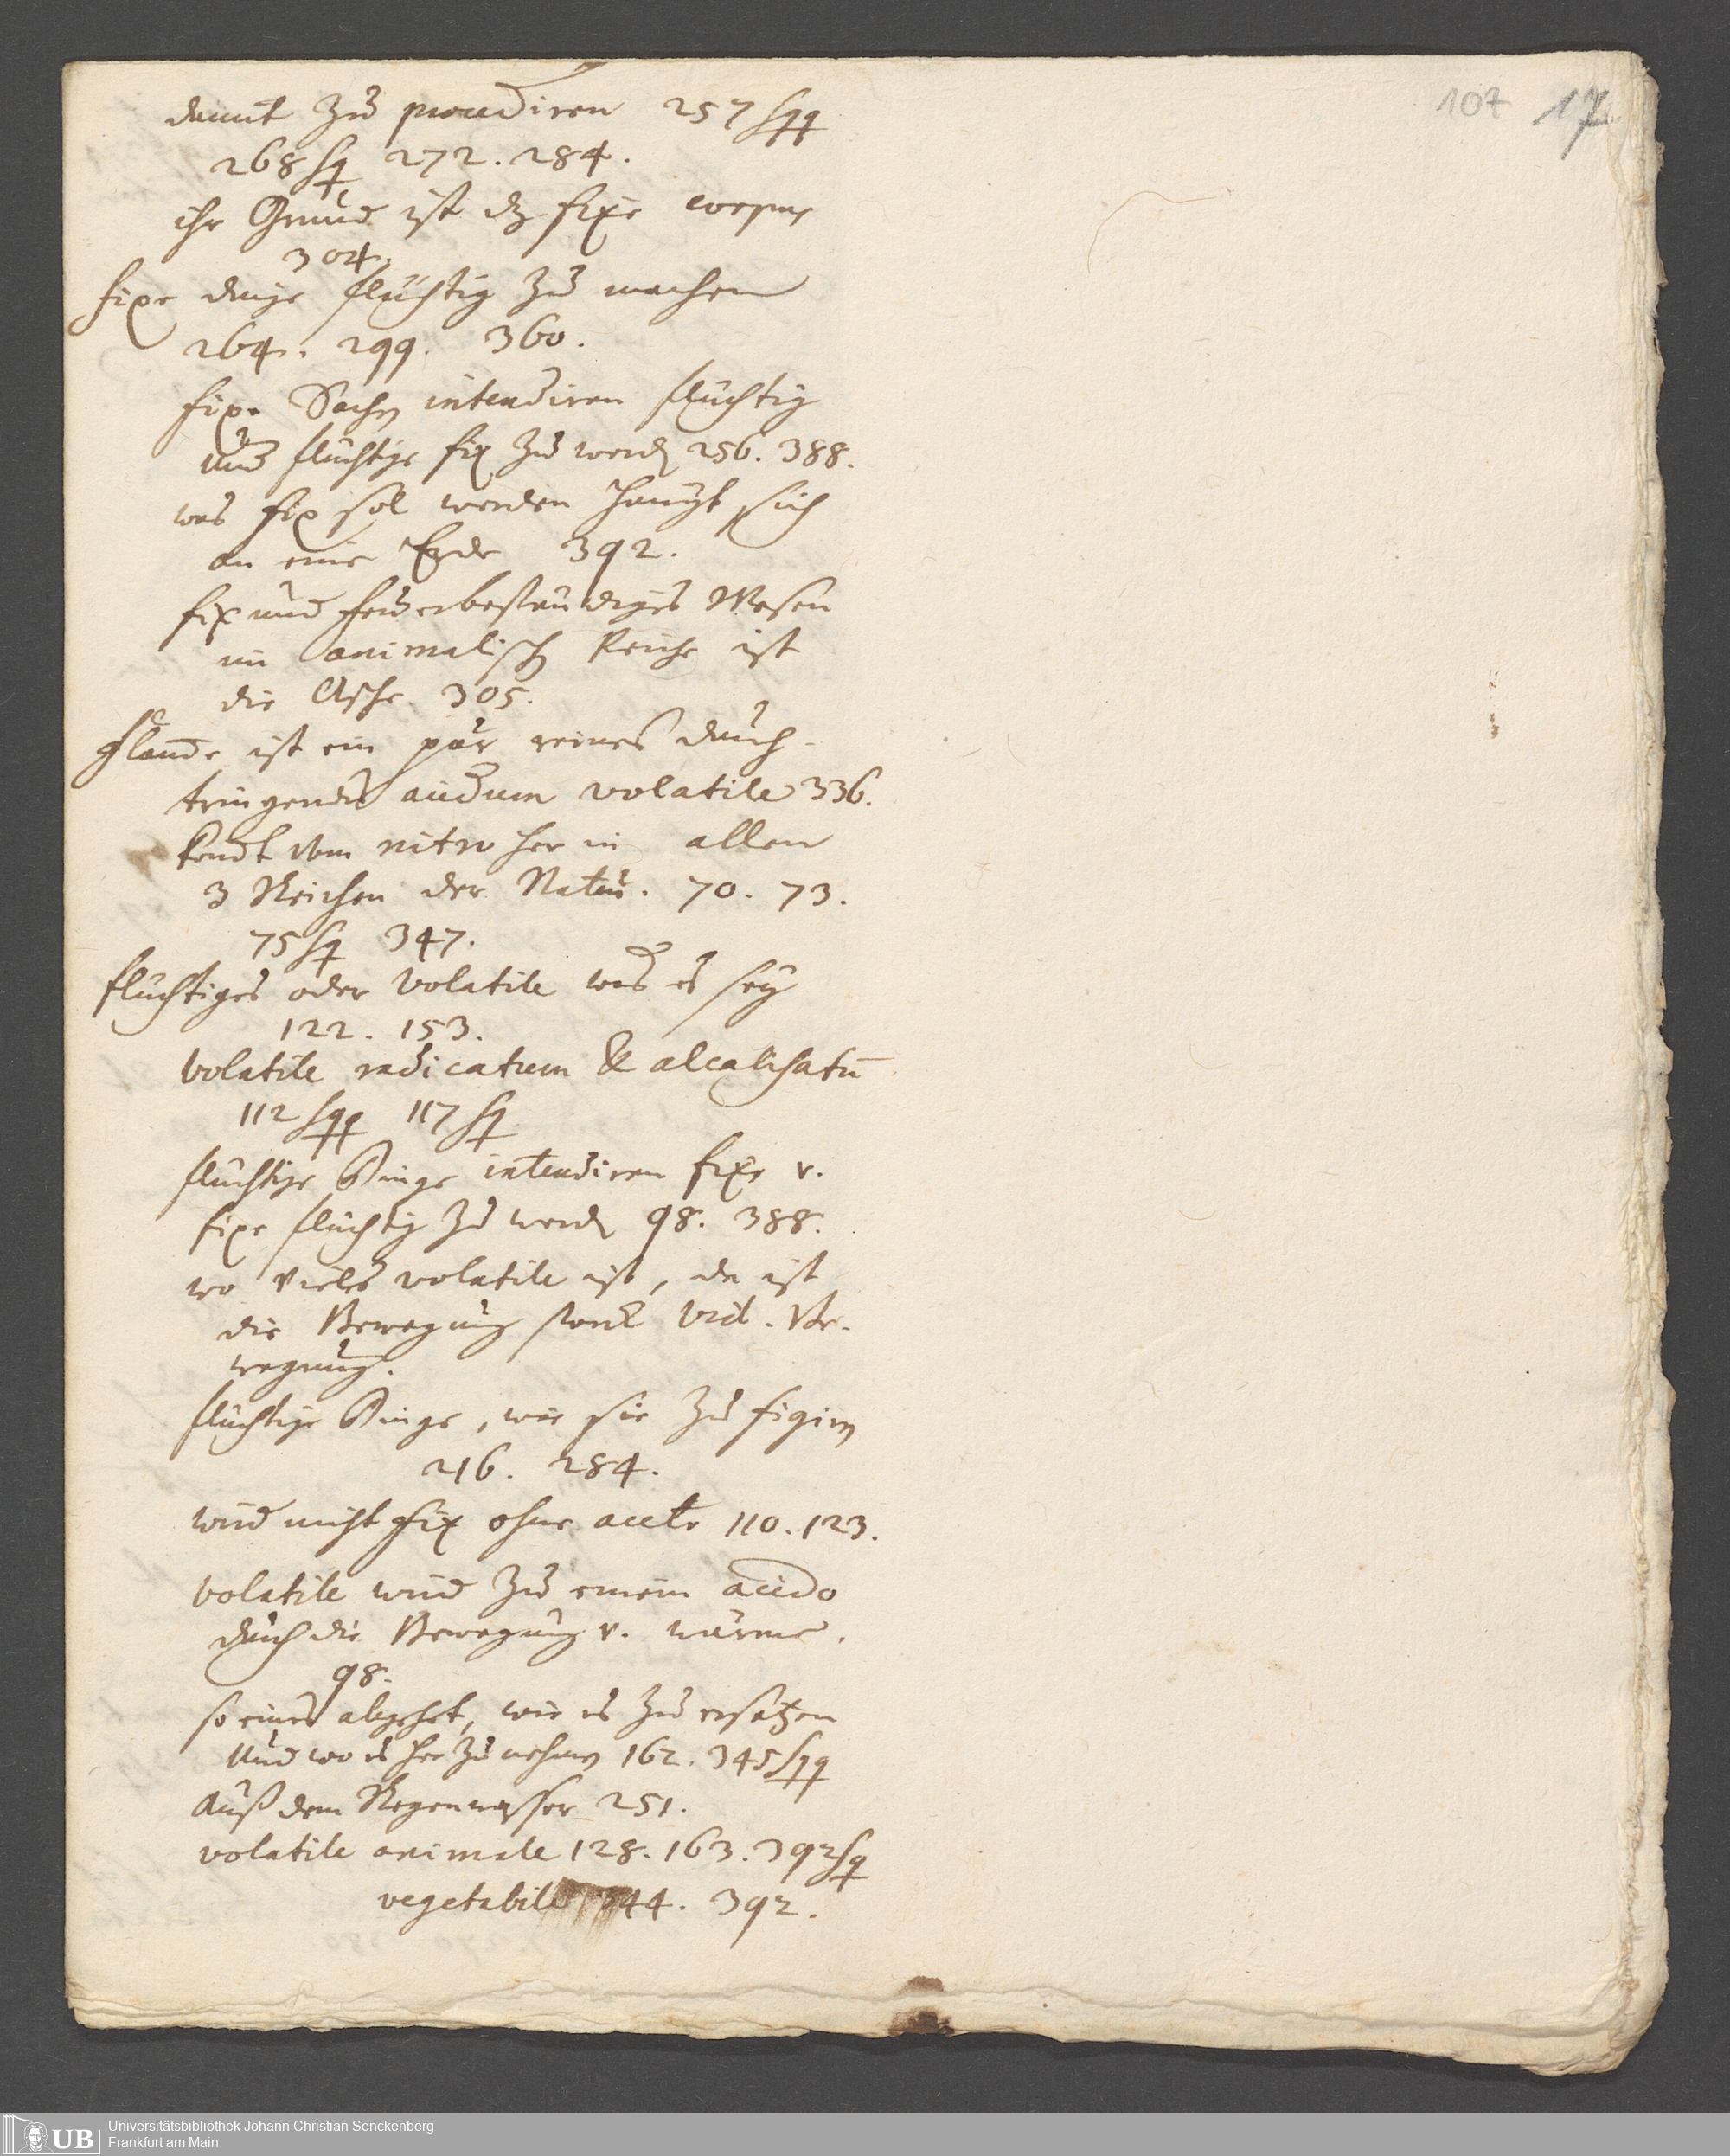 107 17
damit zu procediren 257 sqq
268 sq 272. 284.
ihr Grund ist dz fixe corpus
304.
fixe dinge flüchtig zu machen
264. 299. 360.
fixe Sachen intendiren flüchtig
und flüchtige fix zu werden 256. 388.
was fix sol werden hengt sich
an eine Erde 392.
fix und feuerbeständiges Wesen
im animalischen Reiche ist
die Asche. 305.
flamme ist ein pur reines durch-
tringendes acidum volatile 336.
kommt vom nitro her in allen
3 Reichen der Natur. 70. 73.
75 sq 347.
flüchtiges oder volatile was es sey
122. 153.
volatile radicatum & alcalisatū
112 sqq 117 sq
flüchtige Dinge intendiren fixe v.
fixe flüchtig zu werden 98. 388.
wo vieles volatile ist, da ist
die Bewegung starck vid. Be-
wegung.
flüchtige Dinge, wie sie zu figiren
216. 284.
wird nicht fix ohne aceto 110. 123.
volatile wird zu einem acido
durch die Bewegung v. wärme.
98.
so eines abgehet, wie es zu ersetzen
und wo es her zu nehmen 162. 345 sqq
auß dem Regenwasser 251.
volatile animale 128. 163. 392 sq
vegetabile 144. 392.
UB Universitätsbibliothek Johann Christian Senckenberg
Frankfurt am Main